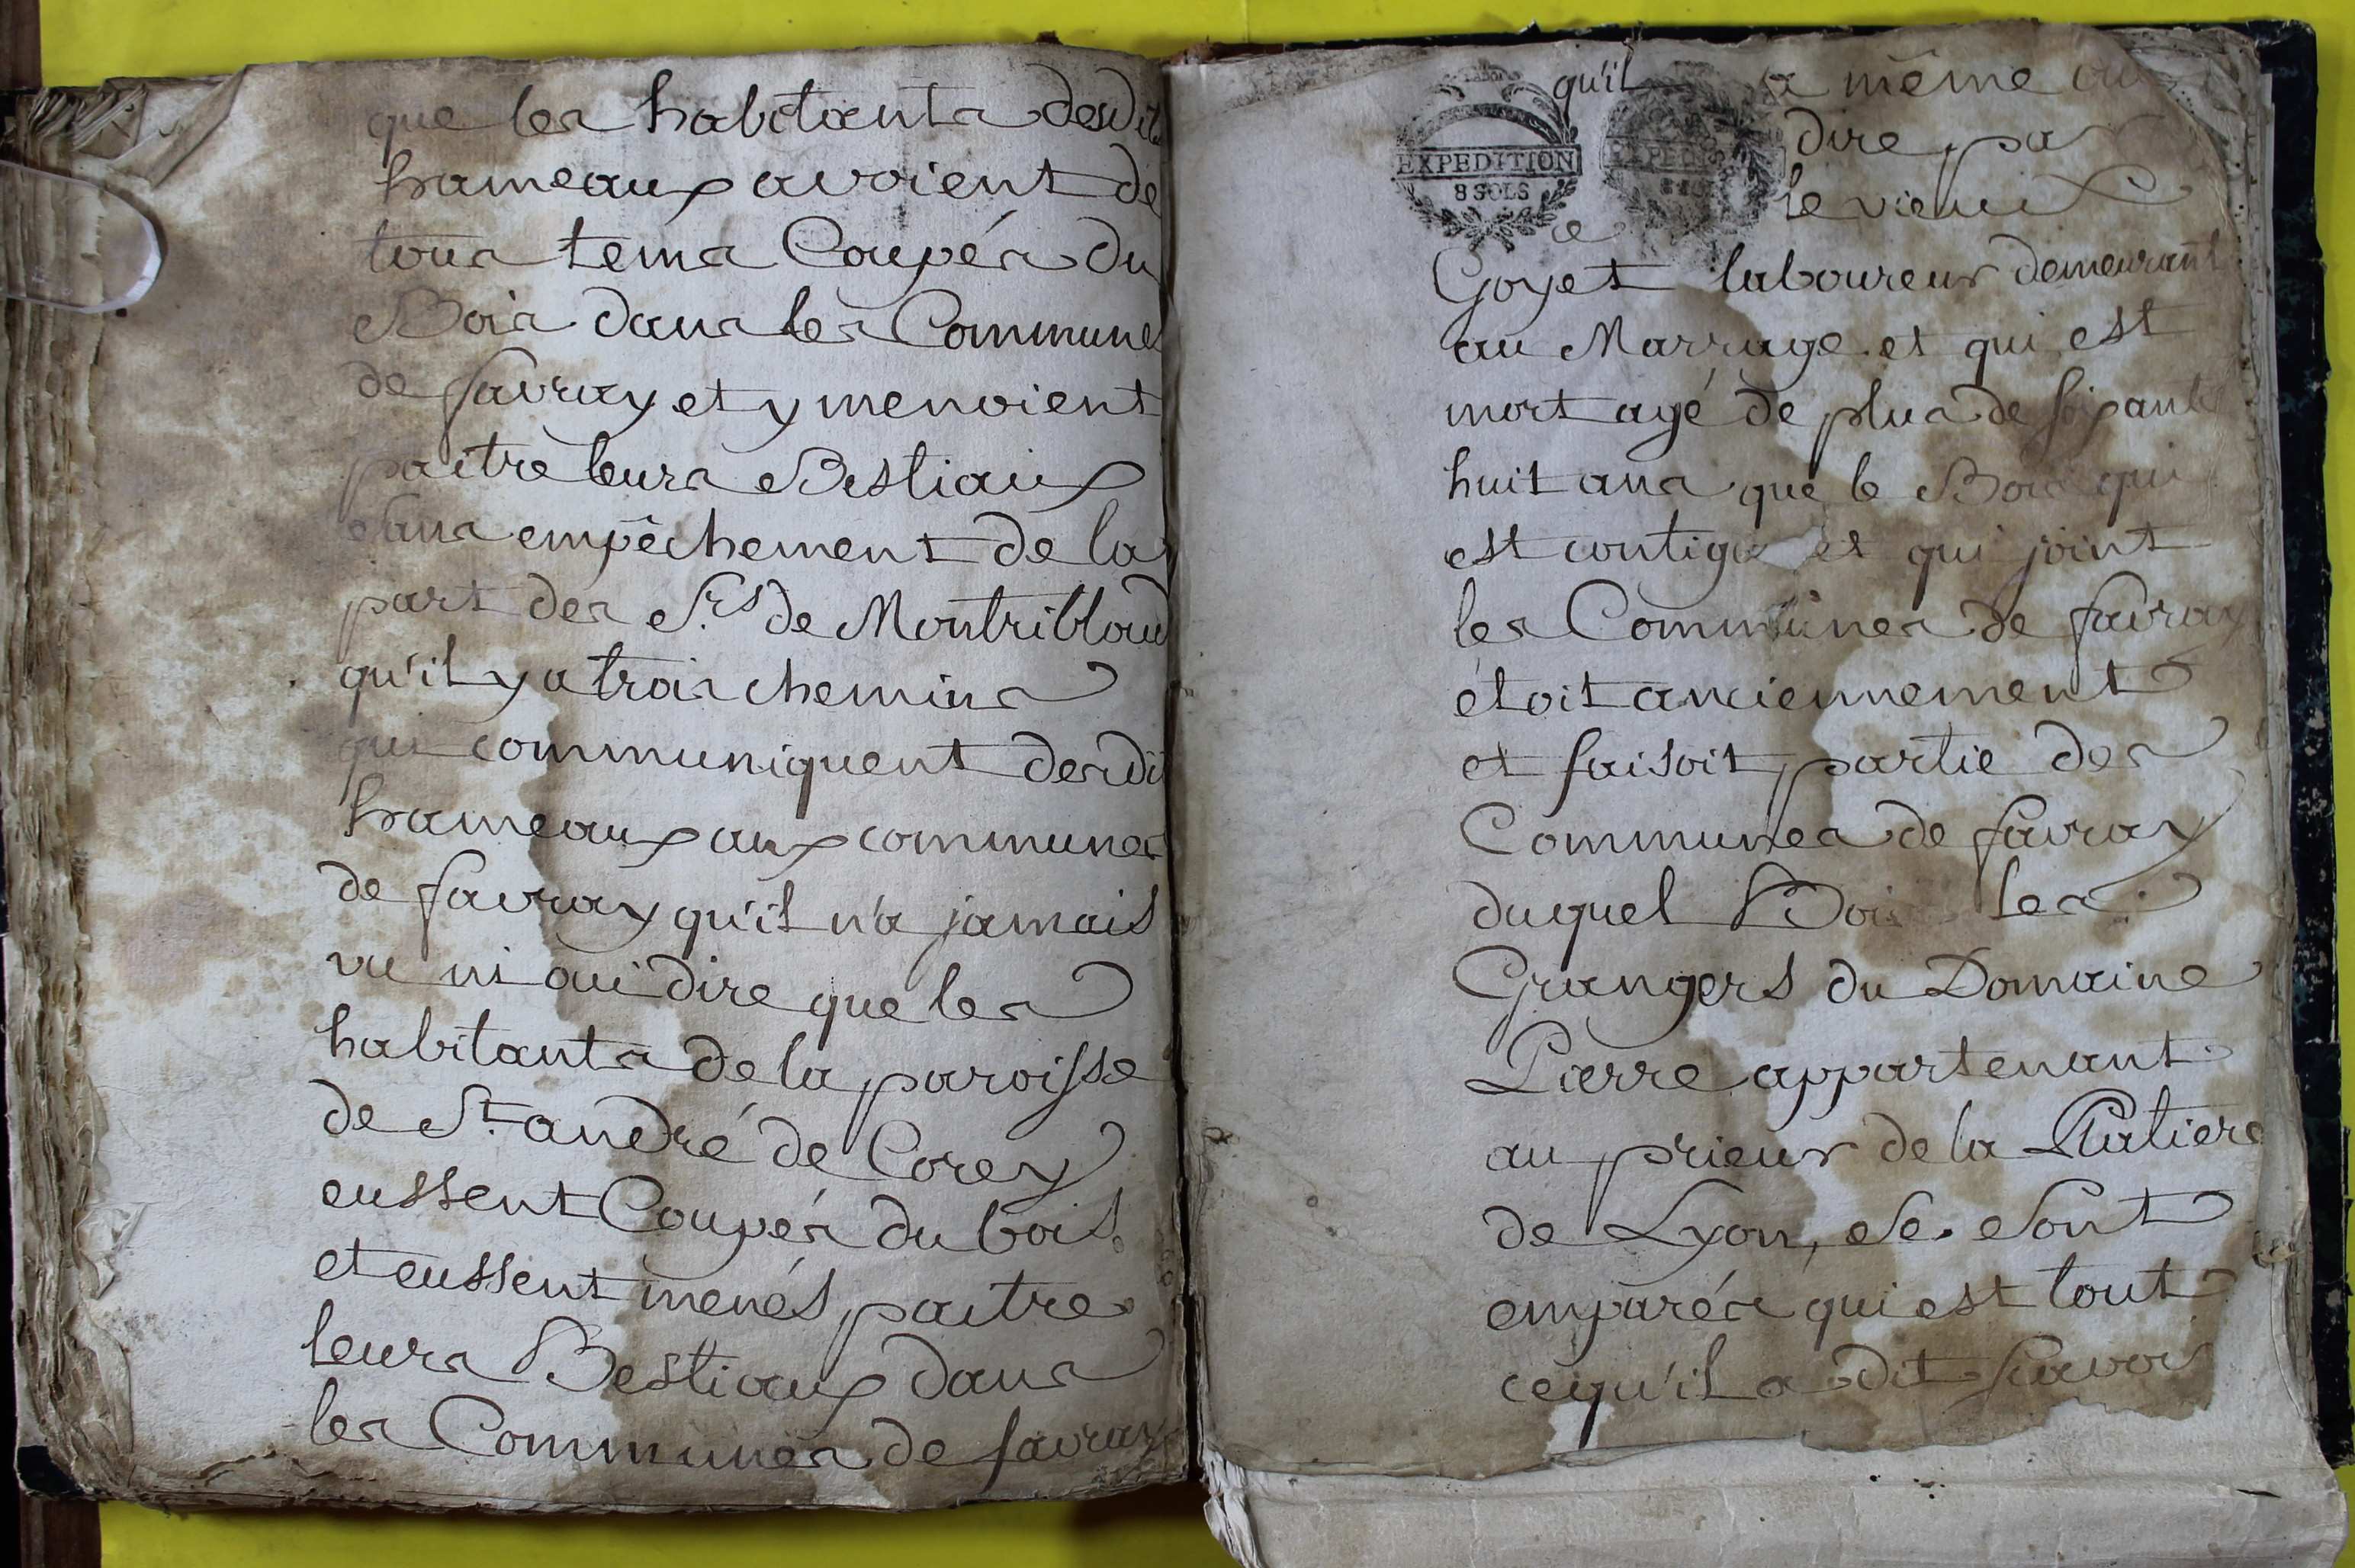 que les habitants desdit
hameaux avoient de
tous tems Coupés du
Bois dans les Communes
de favray et y menoient
paitre leurs Bestiaux
sans empêchement de la
part des S.rs de Montribloud
qu'il y a trois chemins
qui communiquent desdit
hameaux aux communes
de favray qu'il n'a jamais
vu ni oui dire que les
habitants de la paroisse
de St. andré de Corcy
eussent Coupés du bois
et eussent menés paitre
leurs Bestiaux dans
les Communes de favray
qu'il a même oui
dire pa
le vieux
EXPEDITION
8 SOLS
Goyet laboureur demeurant
au Marrage et qui est
mort agé de plus de soixante
huit ans que le Bois qui
est contigu et qui joint
les Communes de favray
étoit anciennement
et faisoit partie des
Communes de favray
duquel Bois les
Grangers du Domaine
Pierre appartenant
au prieur de la Platiere
de Lyon, se sont
emparés qui est tout
cequ'il a dit savoir